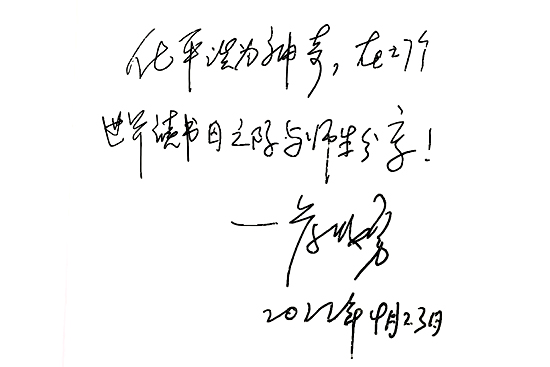 化平淡为神奇,在27个
世界读书日之际与师生分享!
2022年4月23日